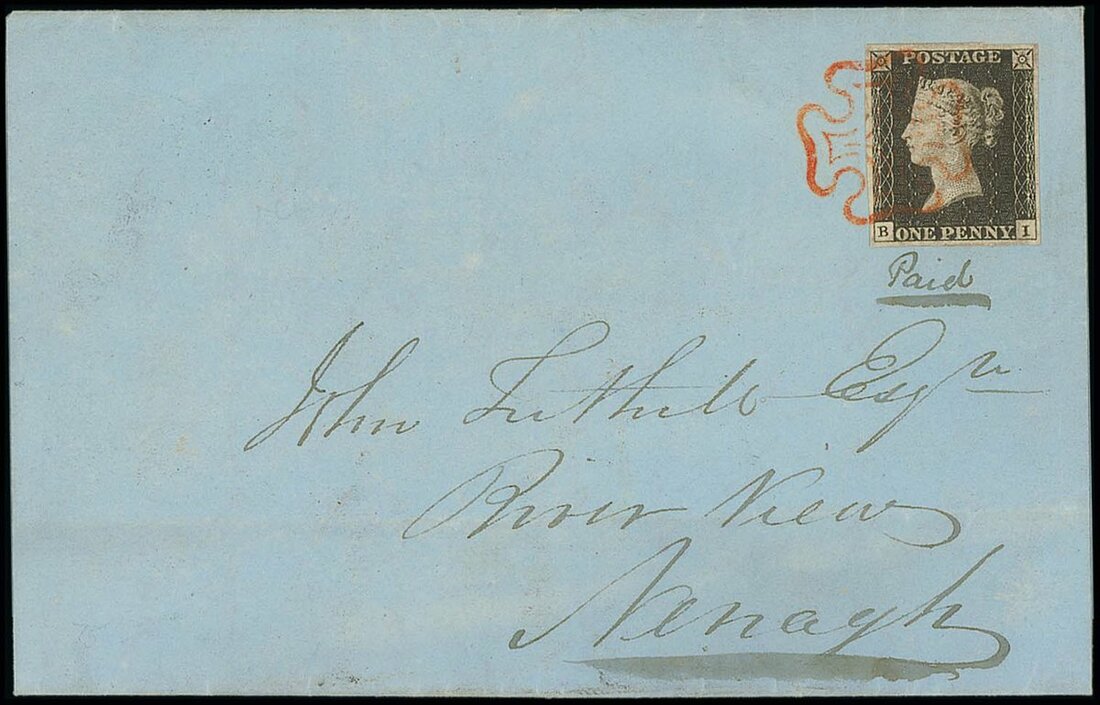 POSTAGE
B ONE PENNY. I
Paid
John Tuthill Esqre
River View
Nenagh